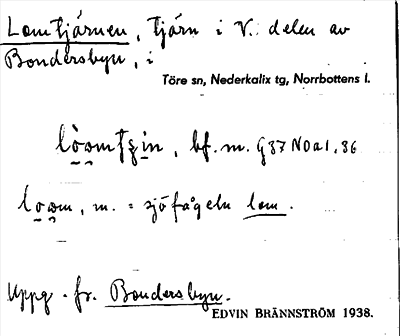 Lomtjärnen, tjärn i V. delen av
Bondersbyn, i
Töre sn, Nederkalix tg, Norrbottens l.
bf. m. G37 N0a1, 36
m. = sjöfågeln lom.
Uppg. fr. Bondersbyn.
EDVIN BRÄNNSTRÖM 1938.